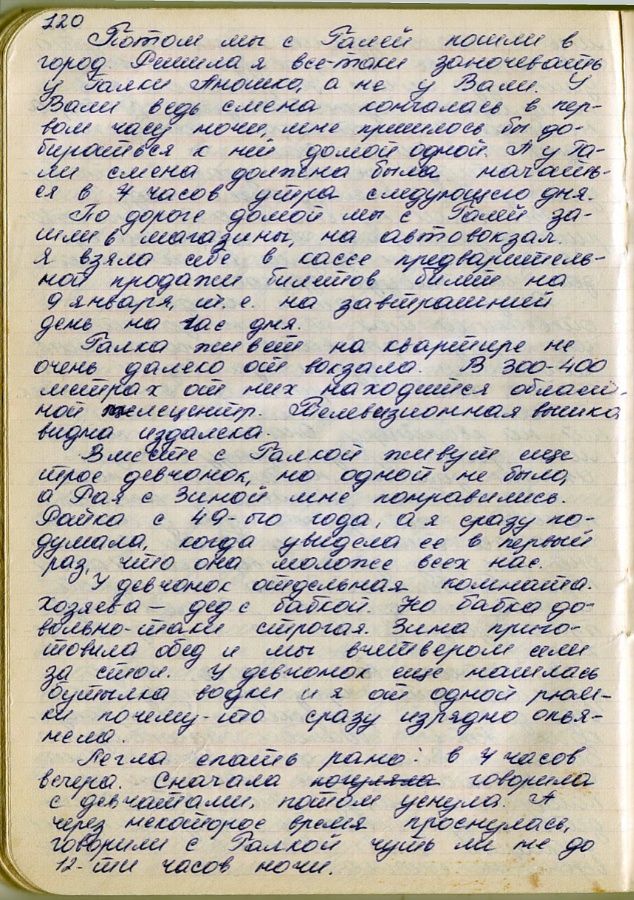 120
Потом мы с Галей пошли в
город. Решила я все-таки заночевать
у Галки Аношко, а не у Вали. У
Вали ведь смена кончалась в пер-
вом часу ночи, мне пришлось бы до-
бираться к ней домой одной. А у Га-
ли смена должна была начать-
ся в 7 часов утра следующего дня.
По дороге домой мы с Галей за-
шли в магазины, на автовокзал.
Я взяла себе в кассе предваритель-
ной продажи билетов билет на
9 января, т.е. на завтрашний
день на час дня.
Галка живет на квартире не
очень далеко от вокзала. В 300-400
метрах от них находится област-
ной телецентр. Телевизионная вышка
видна издалека.
Вместе с Галкой живут еще
трое девчонок, но одной не было
а Рая с Зиной мне понравились.
Райка с 49-ого года, а я сразу по-
думала, когда увидела ее в первый
раз, что она моложе всех нас.
У девчонок отдельная комната.
Хозяева – дед с бабкой. Но бабка до-
вольно-таки строгая. Зина приго-
товила обед и мы вчетвером сели
за стол. У девчонок еще нашлась
бутылка водки и я от одной рюм-
ки почему-то сразу изрядно опья-
нела.
Легла спать рано: в 7 часов
вечера. Сначала погуляла говорила
с девчатами, потом уснула. А
через некоторое время проснулась,
говорили с Галкой чуть ли не до
12-ти часов ночи.